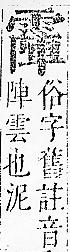 俗字舊註音
陣雲也泥